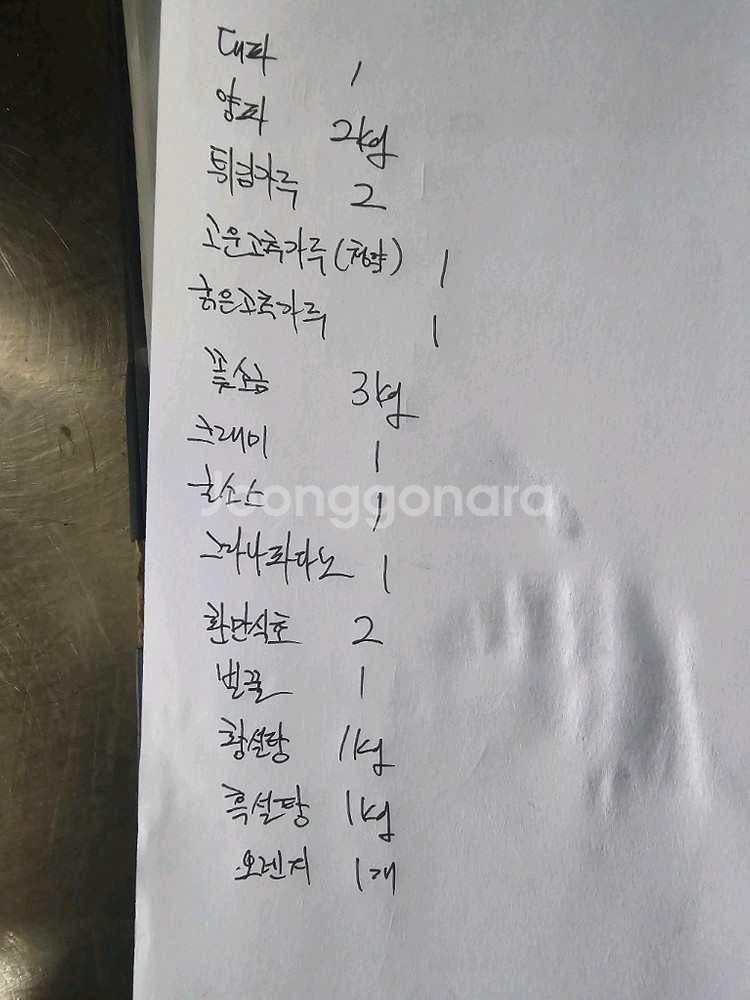 대파 1
양파 2kg
튀김가루 2
고운고춧가루(청양) 1
굵은고춧가루 1
꽃소금 3kg
크래미 1
굴소스 1
그라나파다노 1
환만식초 2
벌꿀 1
황설탕 1kg
흑설탕 1kg
오렌지 1개
Joonggonara